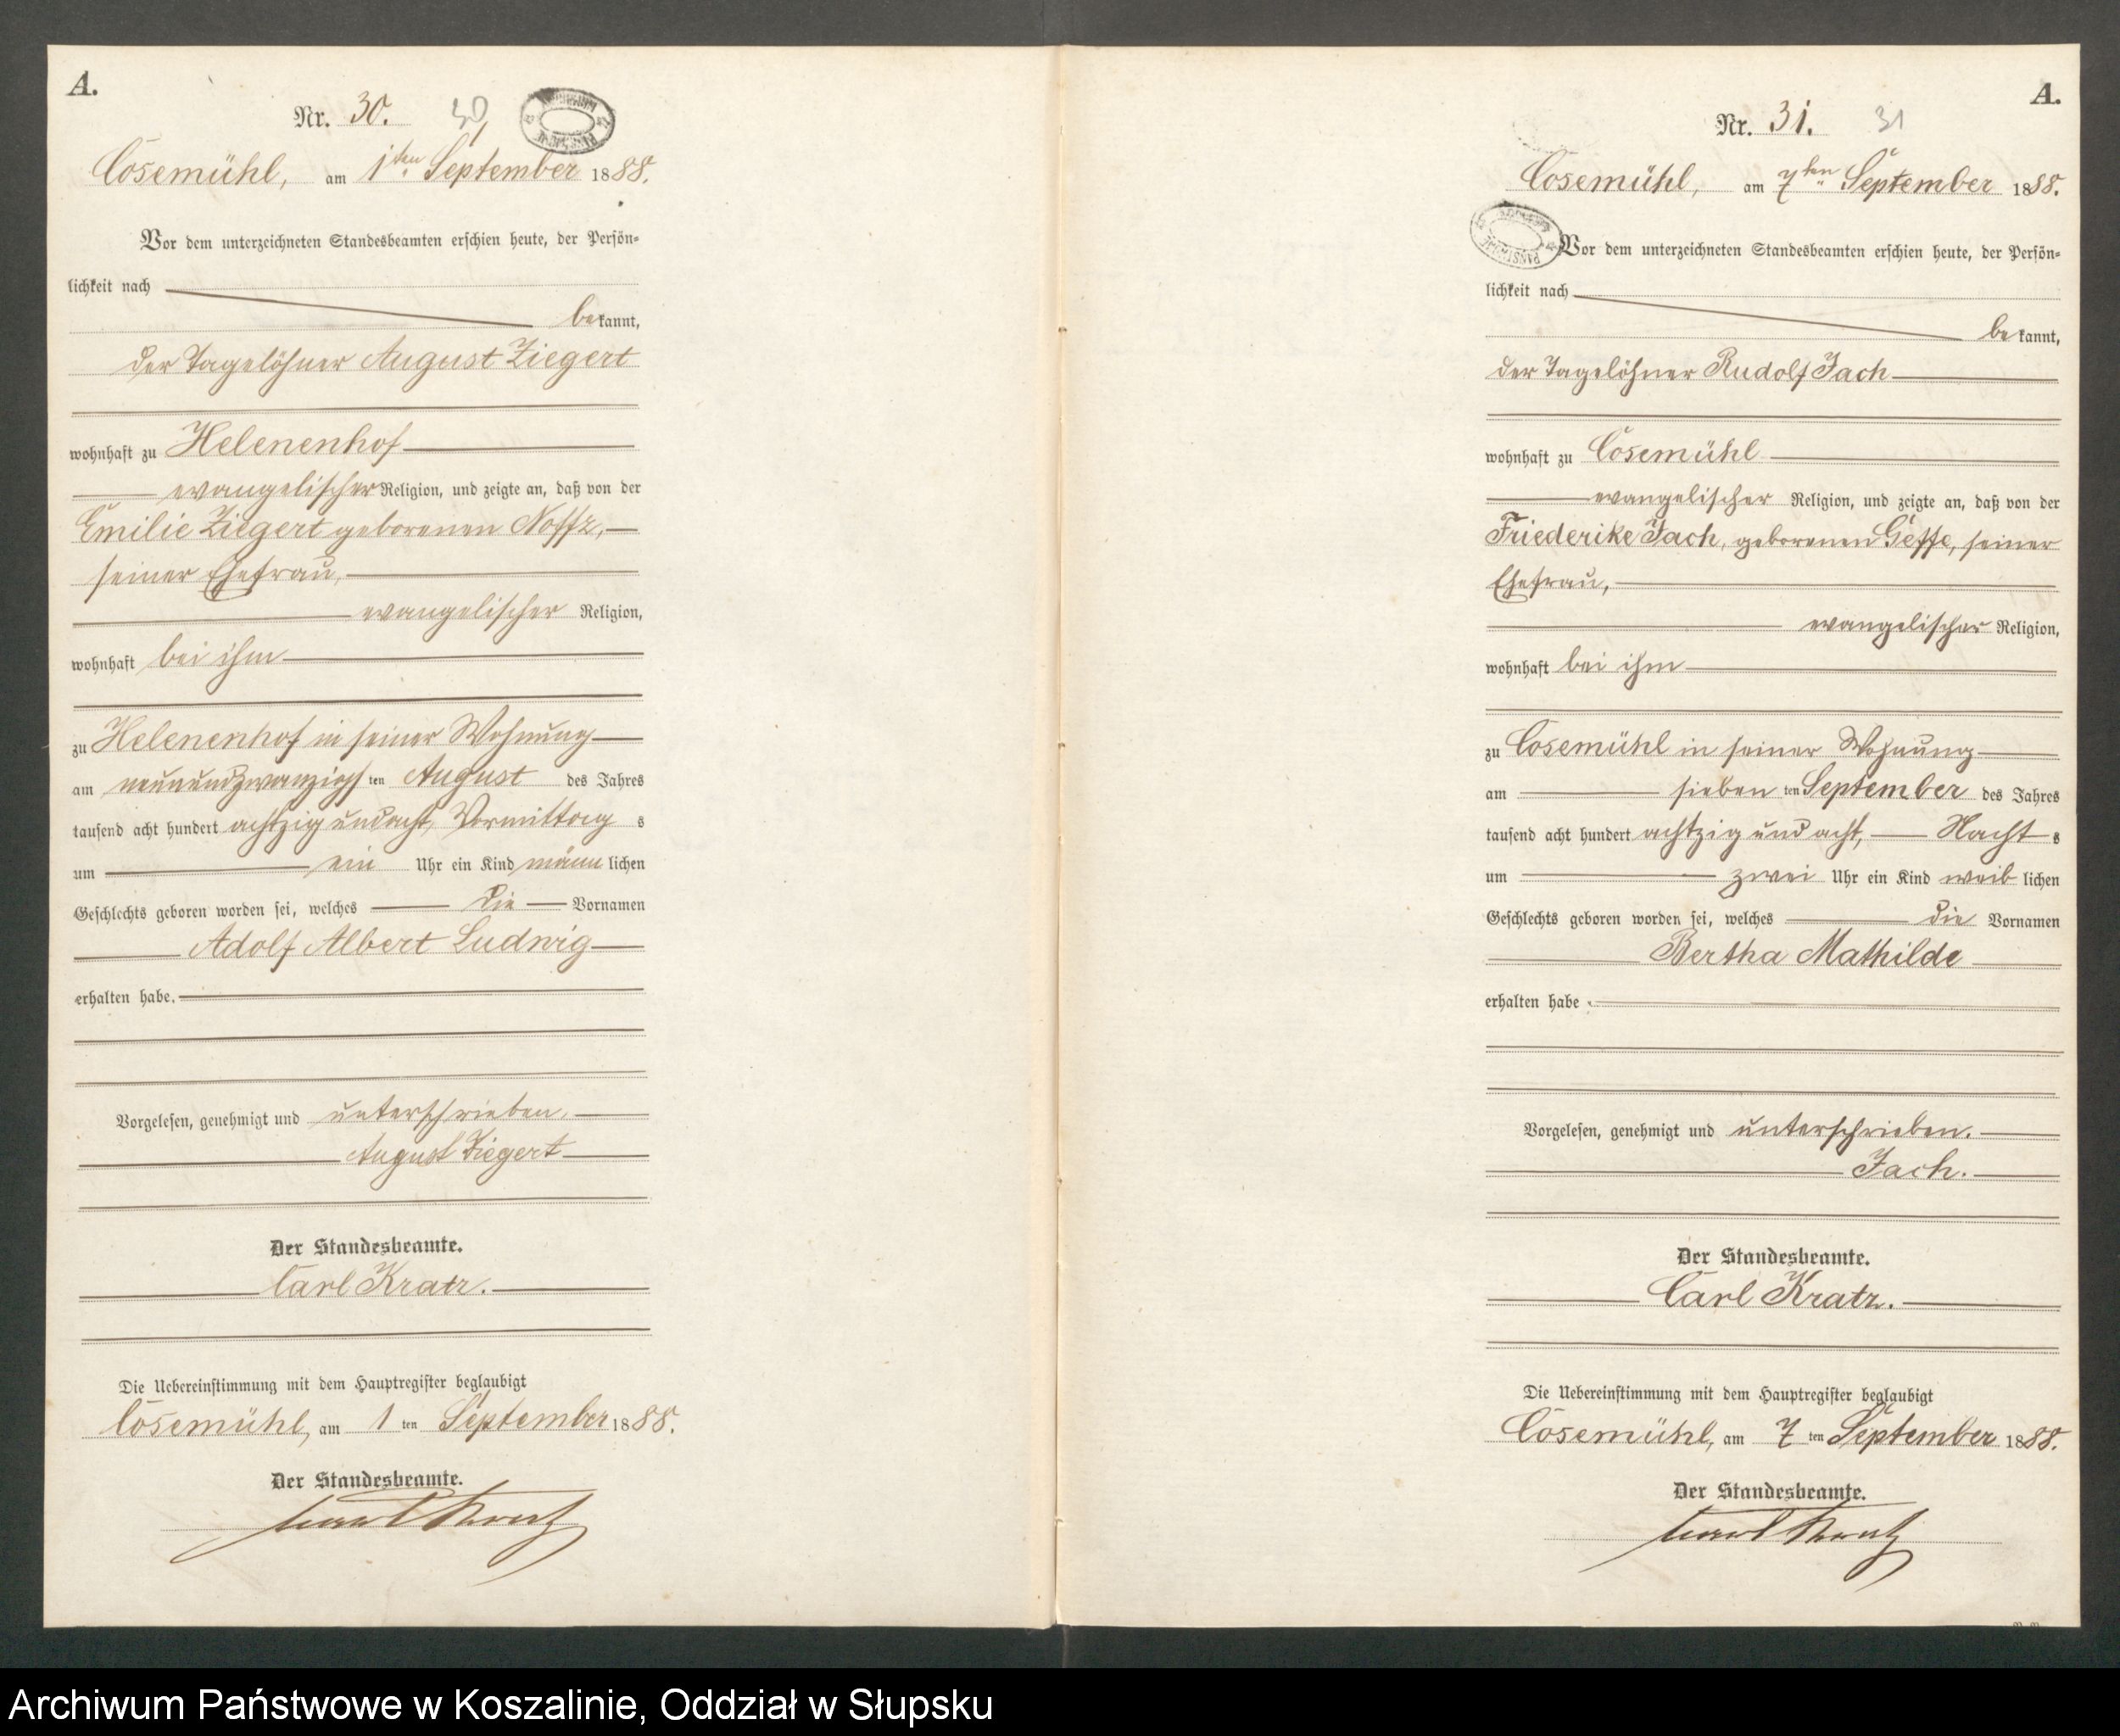 A.
Nr. 30. 30
Cosemühl, am 1ten September 1888.
Vor dem unterzeichneten Standesbeamten erschien heute, der Persön-
lichkeit nach
bekannt,
der Tagelöhner August Ziegert
wohnhaft zu Helenenhof
evangelischer Religion, und zeigte an, daß von der
Emilie Ziegert geborenen Noffz,
seiner Ehefrau,
evangelischer Religion,
wohnhaft bei ihm
zu Helenenhof in seiner Wohnung
am neunundzwanzigsten August des Jahres
tausend acht hundert achtzig und acht, Vormittags
um ein Uhr ein Kind männlichen
Geschlechts geboren worden sei, welches die Vornamen
Adolf Albert Ludwig
erhalten habe.
Vorgelesen, genehmigt und unterschrieben.
August Ziegert
Der Standesbeamte.
Carl Kratz.
Die Uebereinstimmung mit dem Hauptregister beglaubigt
Cosemühl, am 1 ten September 1888.
Der Standesbeamte.
Carl Kratz
A.
Nr. 31. 31
Cosemühl, am 7ten September 1888.
Vor dem unterzeichneten Standesbeamten erschien heute, der Persön-
lichkeit nach
bekannt,
der Tagelöhner Rudolf Jach
wohnhaft zu Cosemühl
evangelischer Religion, und zeigte an, daß von der
Friederike Jach, geborenen Geffe, seiner
Ehefrau,
evangelischer Religion,
wohnhaft bei ihm
zu Cosemühl in seiner Wohnung
am siebenten September des Jahres
tausend acht hundert achtzig und acht, Nachts
um zwei Uhr ein Kind weiblichen
Geschlechts geboren worden sei, welches die Vornamen
Bertha Mathilde
erhalten habe.
Vorgelesen, genehmigt und unterschrieben.
Jach.
Der Standesbeamte.
Carl Kratz.
Die Uebereinstimmung mit dem Hauptregister beglaubigt
Cosemühl, am 7 ten September 1888.
Der Standesbeamte.
Carl Kratz
Archiwum Państwowe w Koszalinie, Oddział w Słupsku